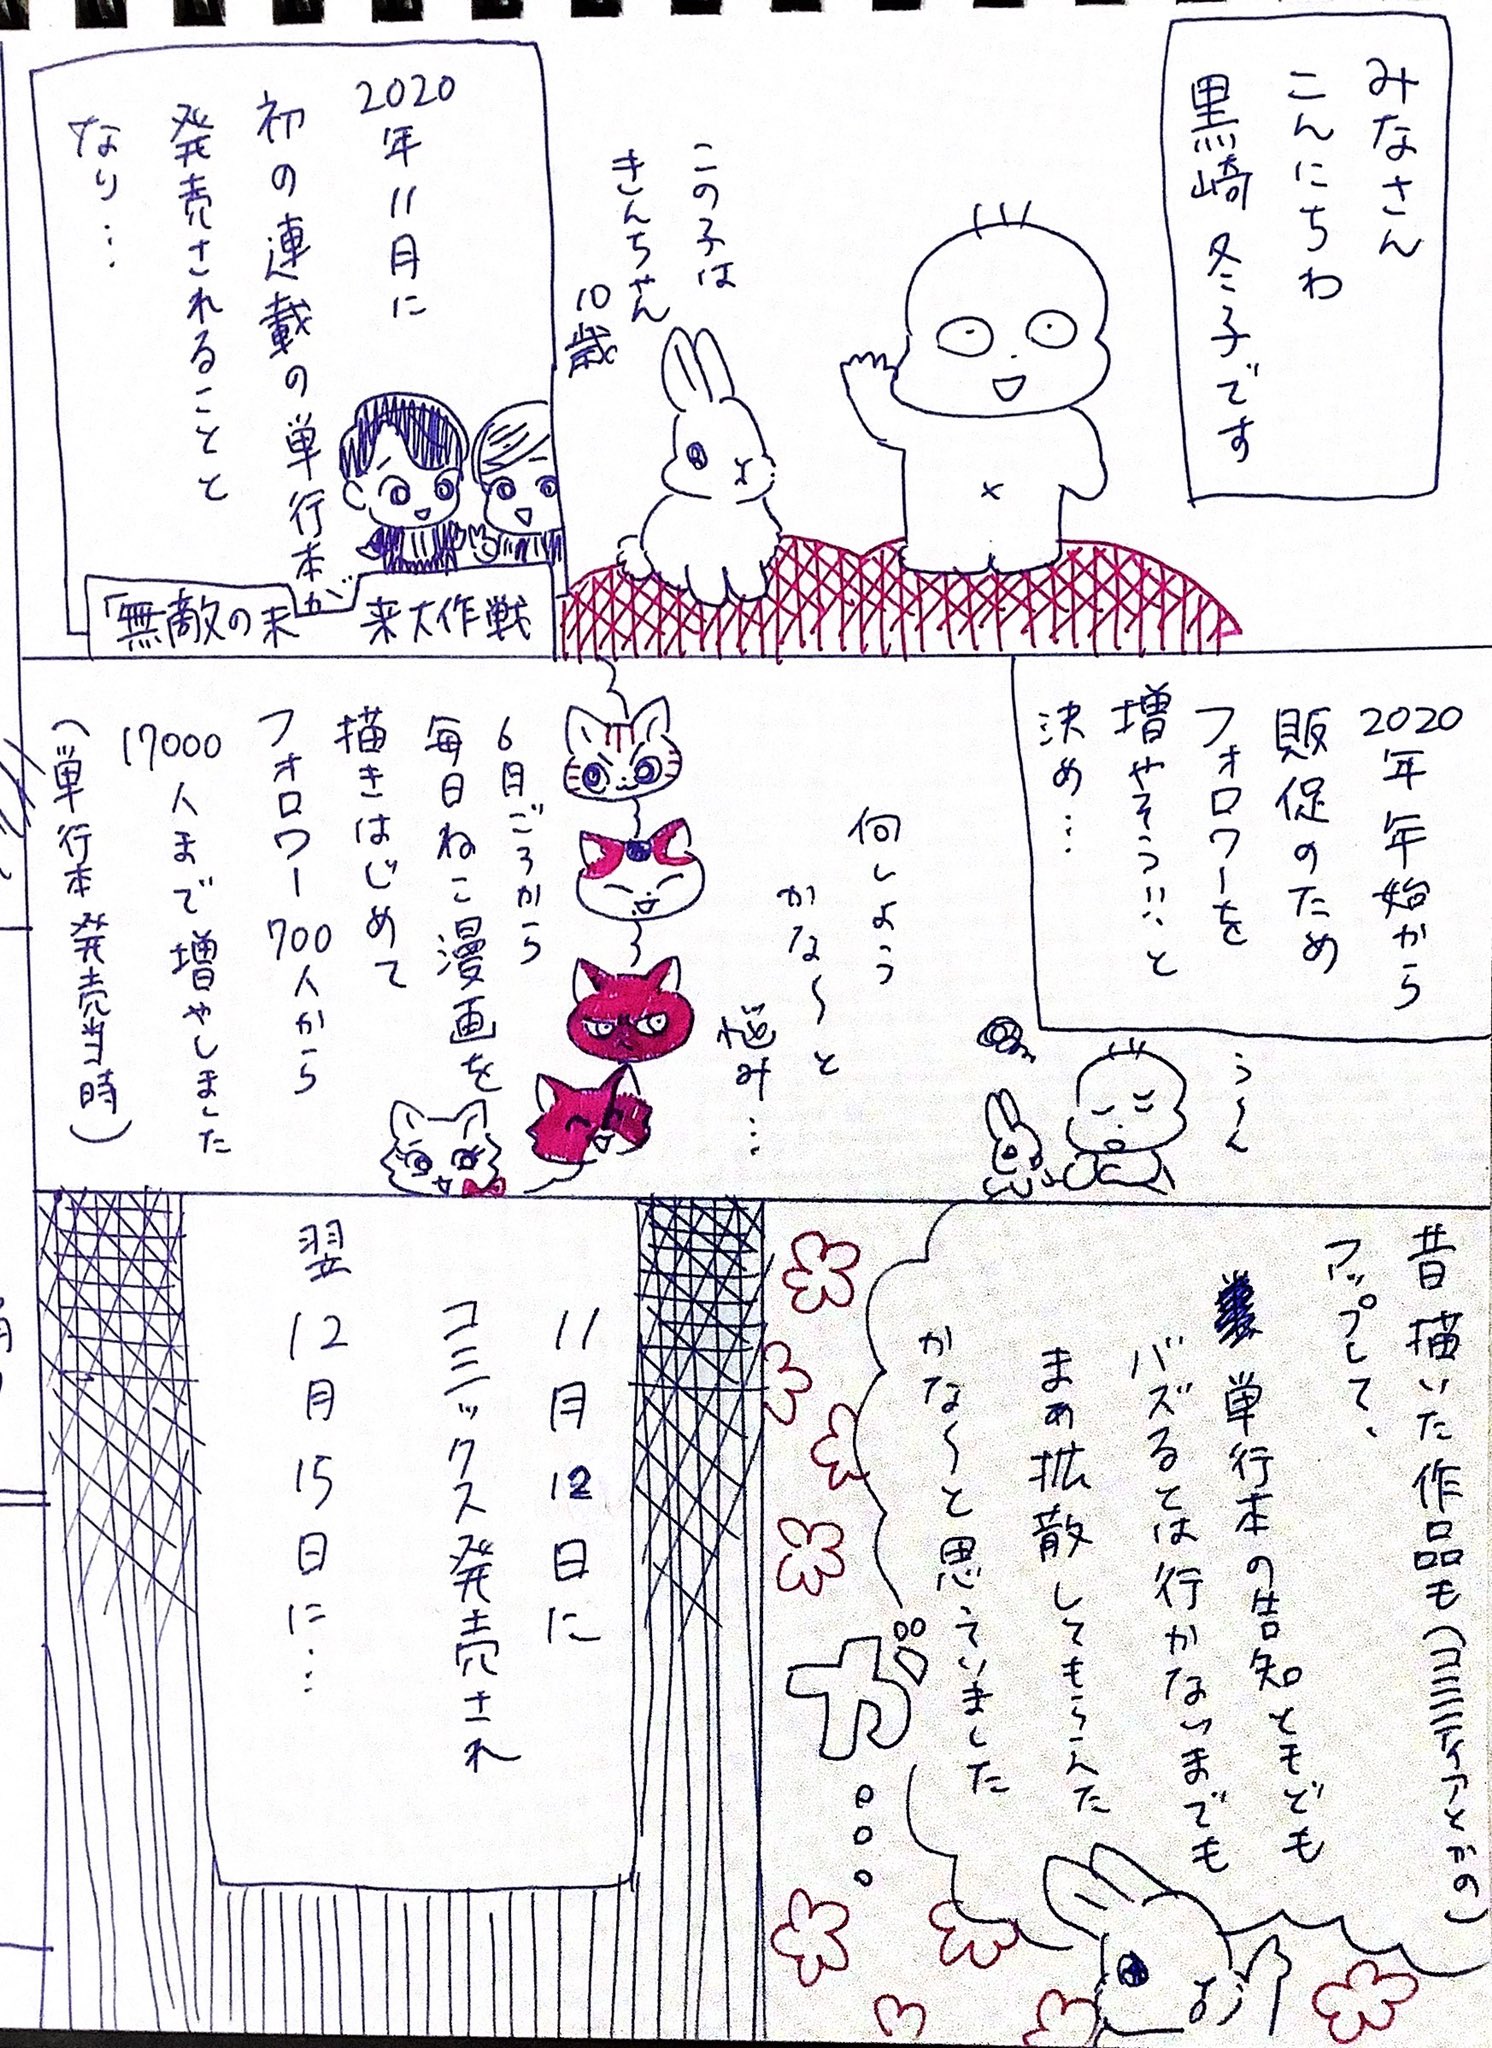 みなさん
こんにちわ
黒崎冬子です
この子は
きんちゃん
10歳
2020年11月に
初の連載の単行本が
発売されることと
なり…
「無敵の未来大作戦
2020年年始から
販促のため
フォロワーを
増やそう!!と
決め…
う〜ん
何しよう
かな〜と
悩み…
6月ごろから
毎日ねこ漫画を
描きはじめて
フォロワー700人から
17000人まで増やしました
(単行本発売当時)
昔描いた作品も(コミティアとかの)
アップして、
単行本の告知ともども
バズるとは行かないまでも
まぁ拡散してもらえた
かな〜と思っていました
が…
11月12日に
コミックス発売され
翌12月15日に…